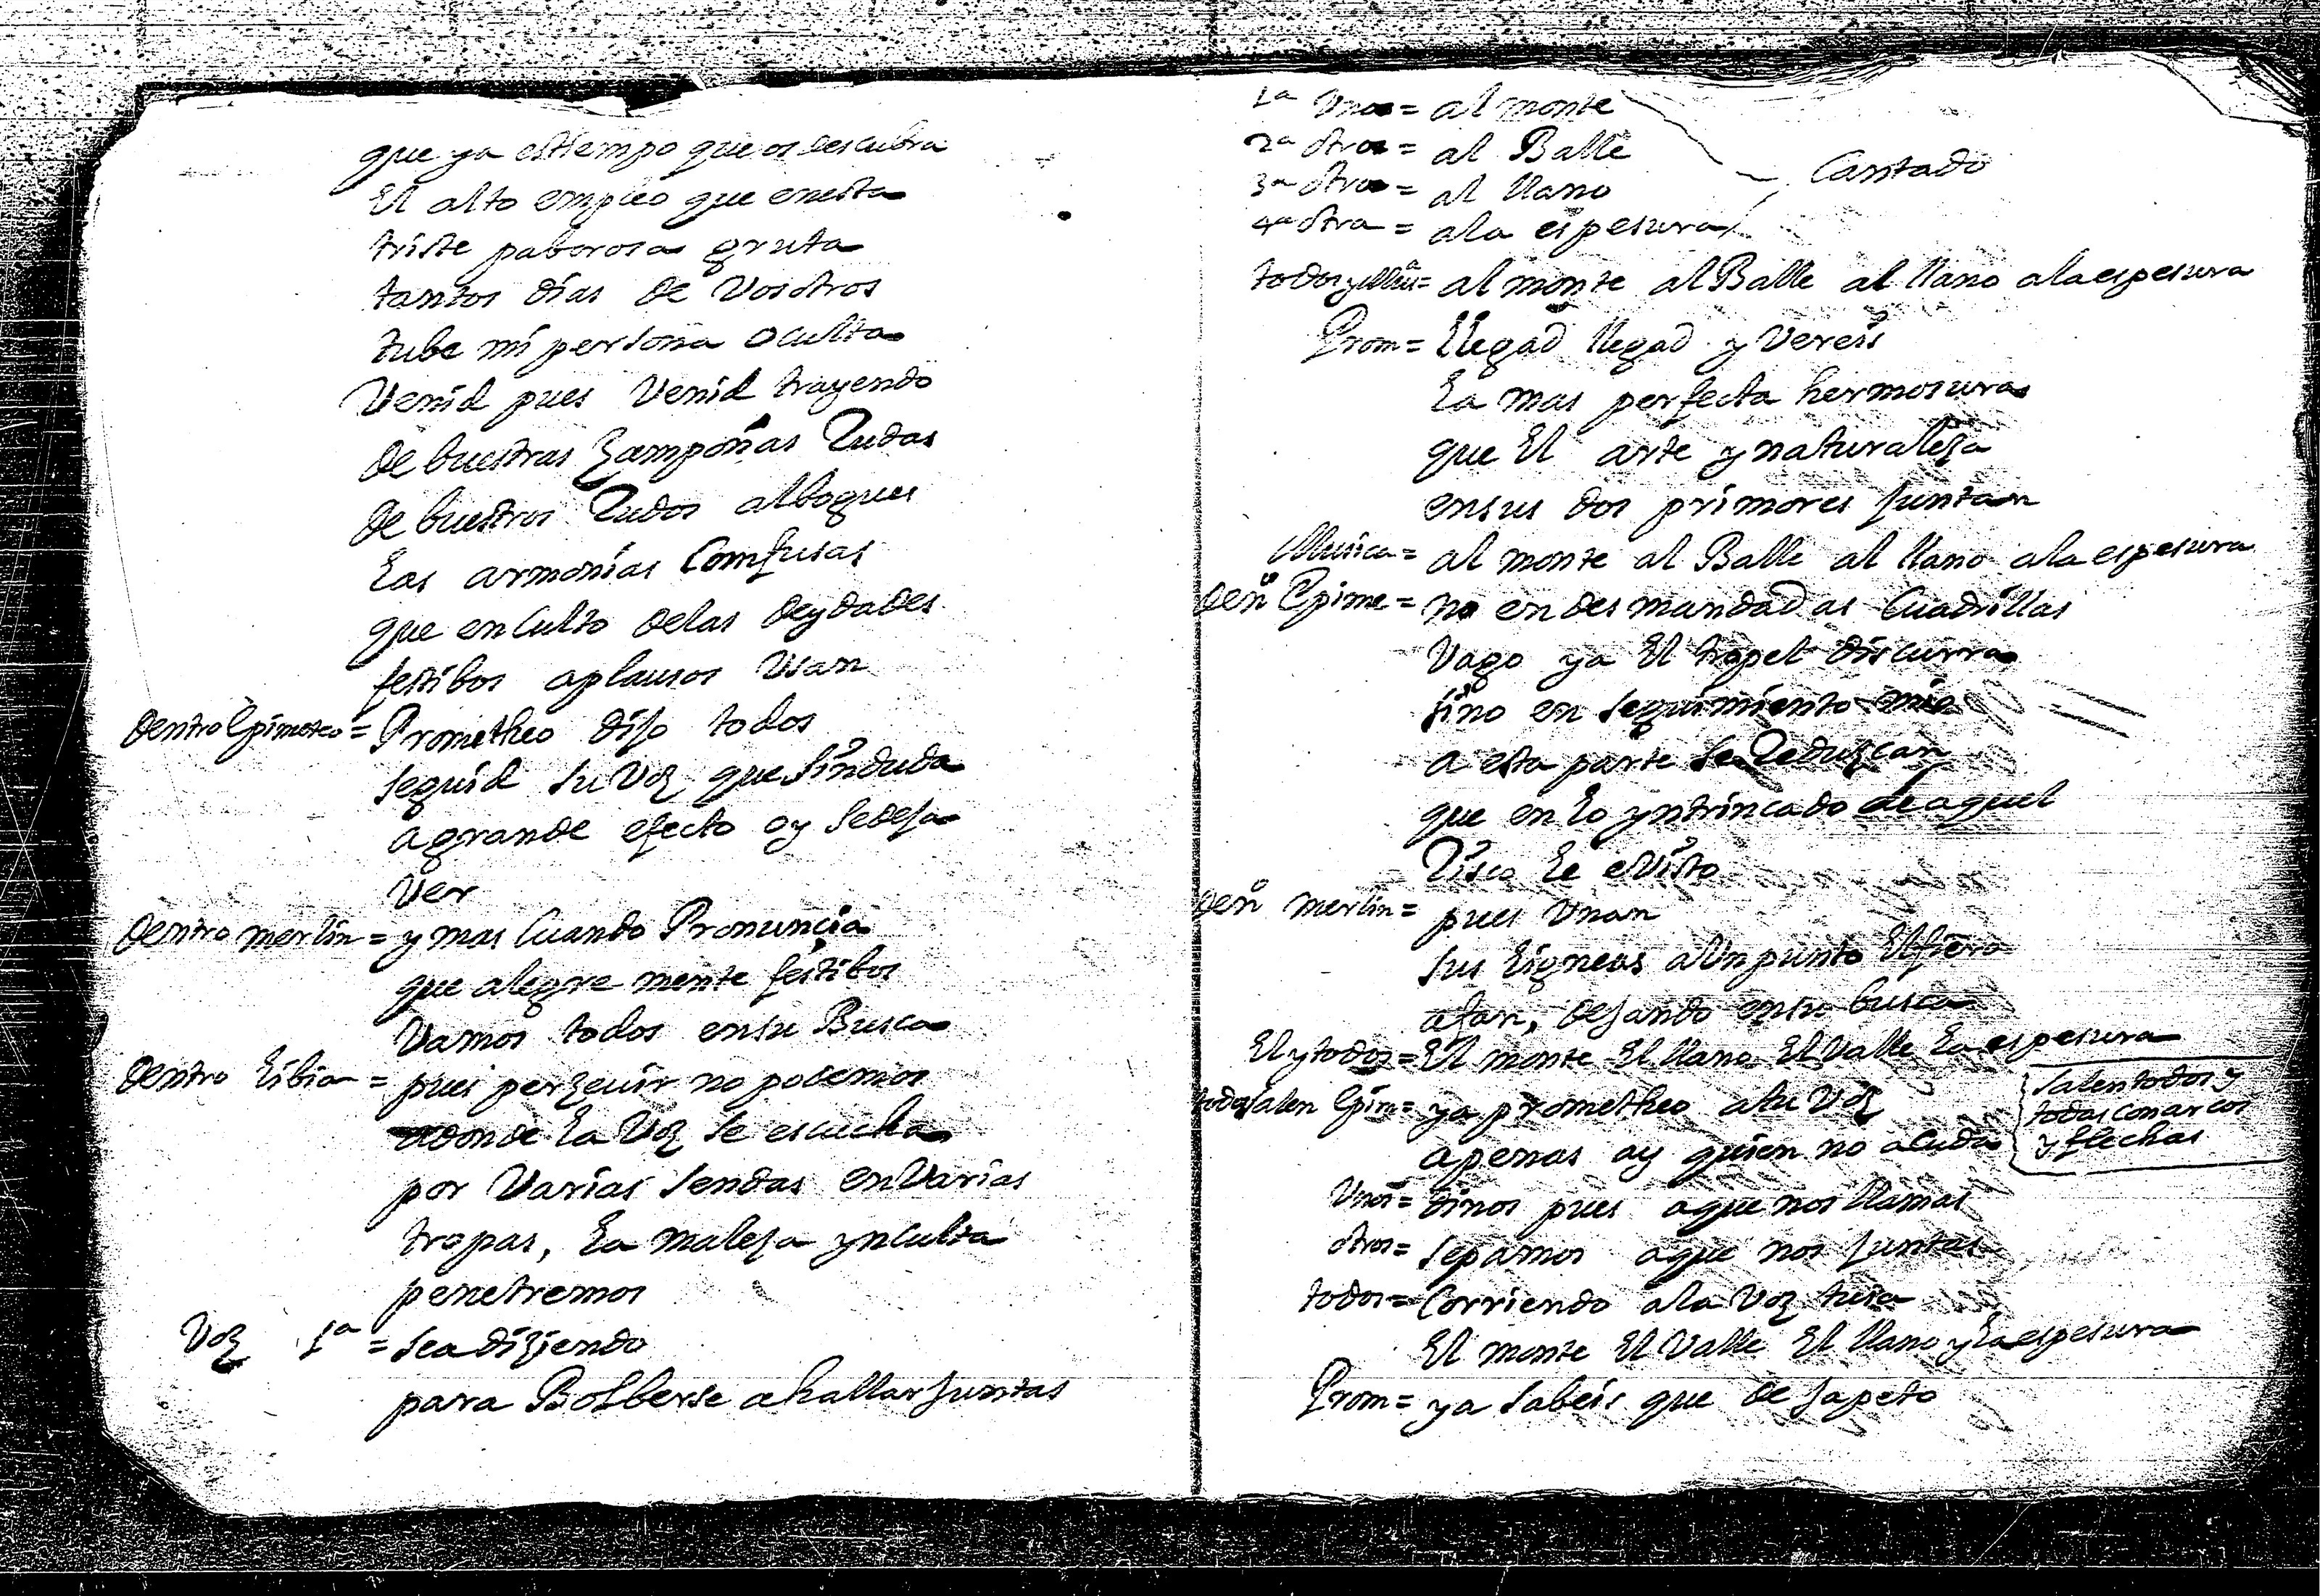 que ya es tiempo que os descubra
El alto empleo que enesta
triste paborosa gruta
tantos dias de Vosotros
tube mi persona oculta
Venid pues Venid trayendo
de buestras zamponas Rudas
de buestros Rudos albogues
las armonias Comfusas
que en Culto delas deydades
festibos aplausos Usan
dentro Epimoteo = Prometheo dijo todos
seguid su Voz que sinduda
a grande efecto oy sedeja
Ver
dentro merlin = y mas Cuando Pronuncia
que alegre mente festibos
Vamos todos ensu Busca
dentro libia = pues perzeuir no podemos
adonde la Voz se escucha
por Varias sendas en Varias
tropas, la maleja ynculta
penetremos
Voz 1ª = sea diziendo
para Bolberse a hallar juntas
1ª Unos = al monte
2ª otros = al Balle
3ª otros = al llano
4ª otra = ala espesura
Cantado
todos y = al monte al Balle al llano ala espesura
Prom = llegad llegad y Vereis
la mas perfecta hermosura
que El arte y naturaleza
ensus dos primores juntan
Musica = al monte al Balle al llano ala espesura
denº Epime = no en des mandadas Cuadrillas
Vago ya El tropel discurra
sino en seguimiento mio
a esta parte se Reduzcan
que en lo yntrincado de aquel
Risco le e Visto
denº merlin = pues Unan
sus ligneas a Un punto El fiero
afan, dejando ensu busca
El y todos = El monte El llano El Valle la espesura
todos salen Epim = ya prometheo atu Voz
apenas ay quien no acuda
salen todos y
todas con arcos
y flechas
Unos = dinos pues aque nos llamas
otros = sepamos aque nos juntas
todos = Corriendo ala Voz tuia
El monte El Valle El llano y la espesura
Prom = ya sabeis que de japeto